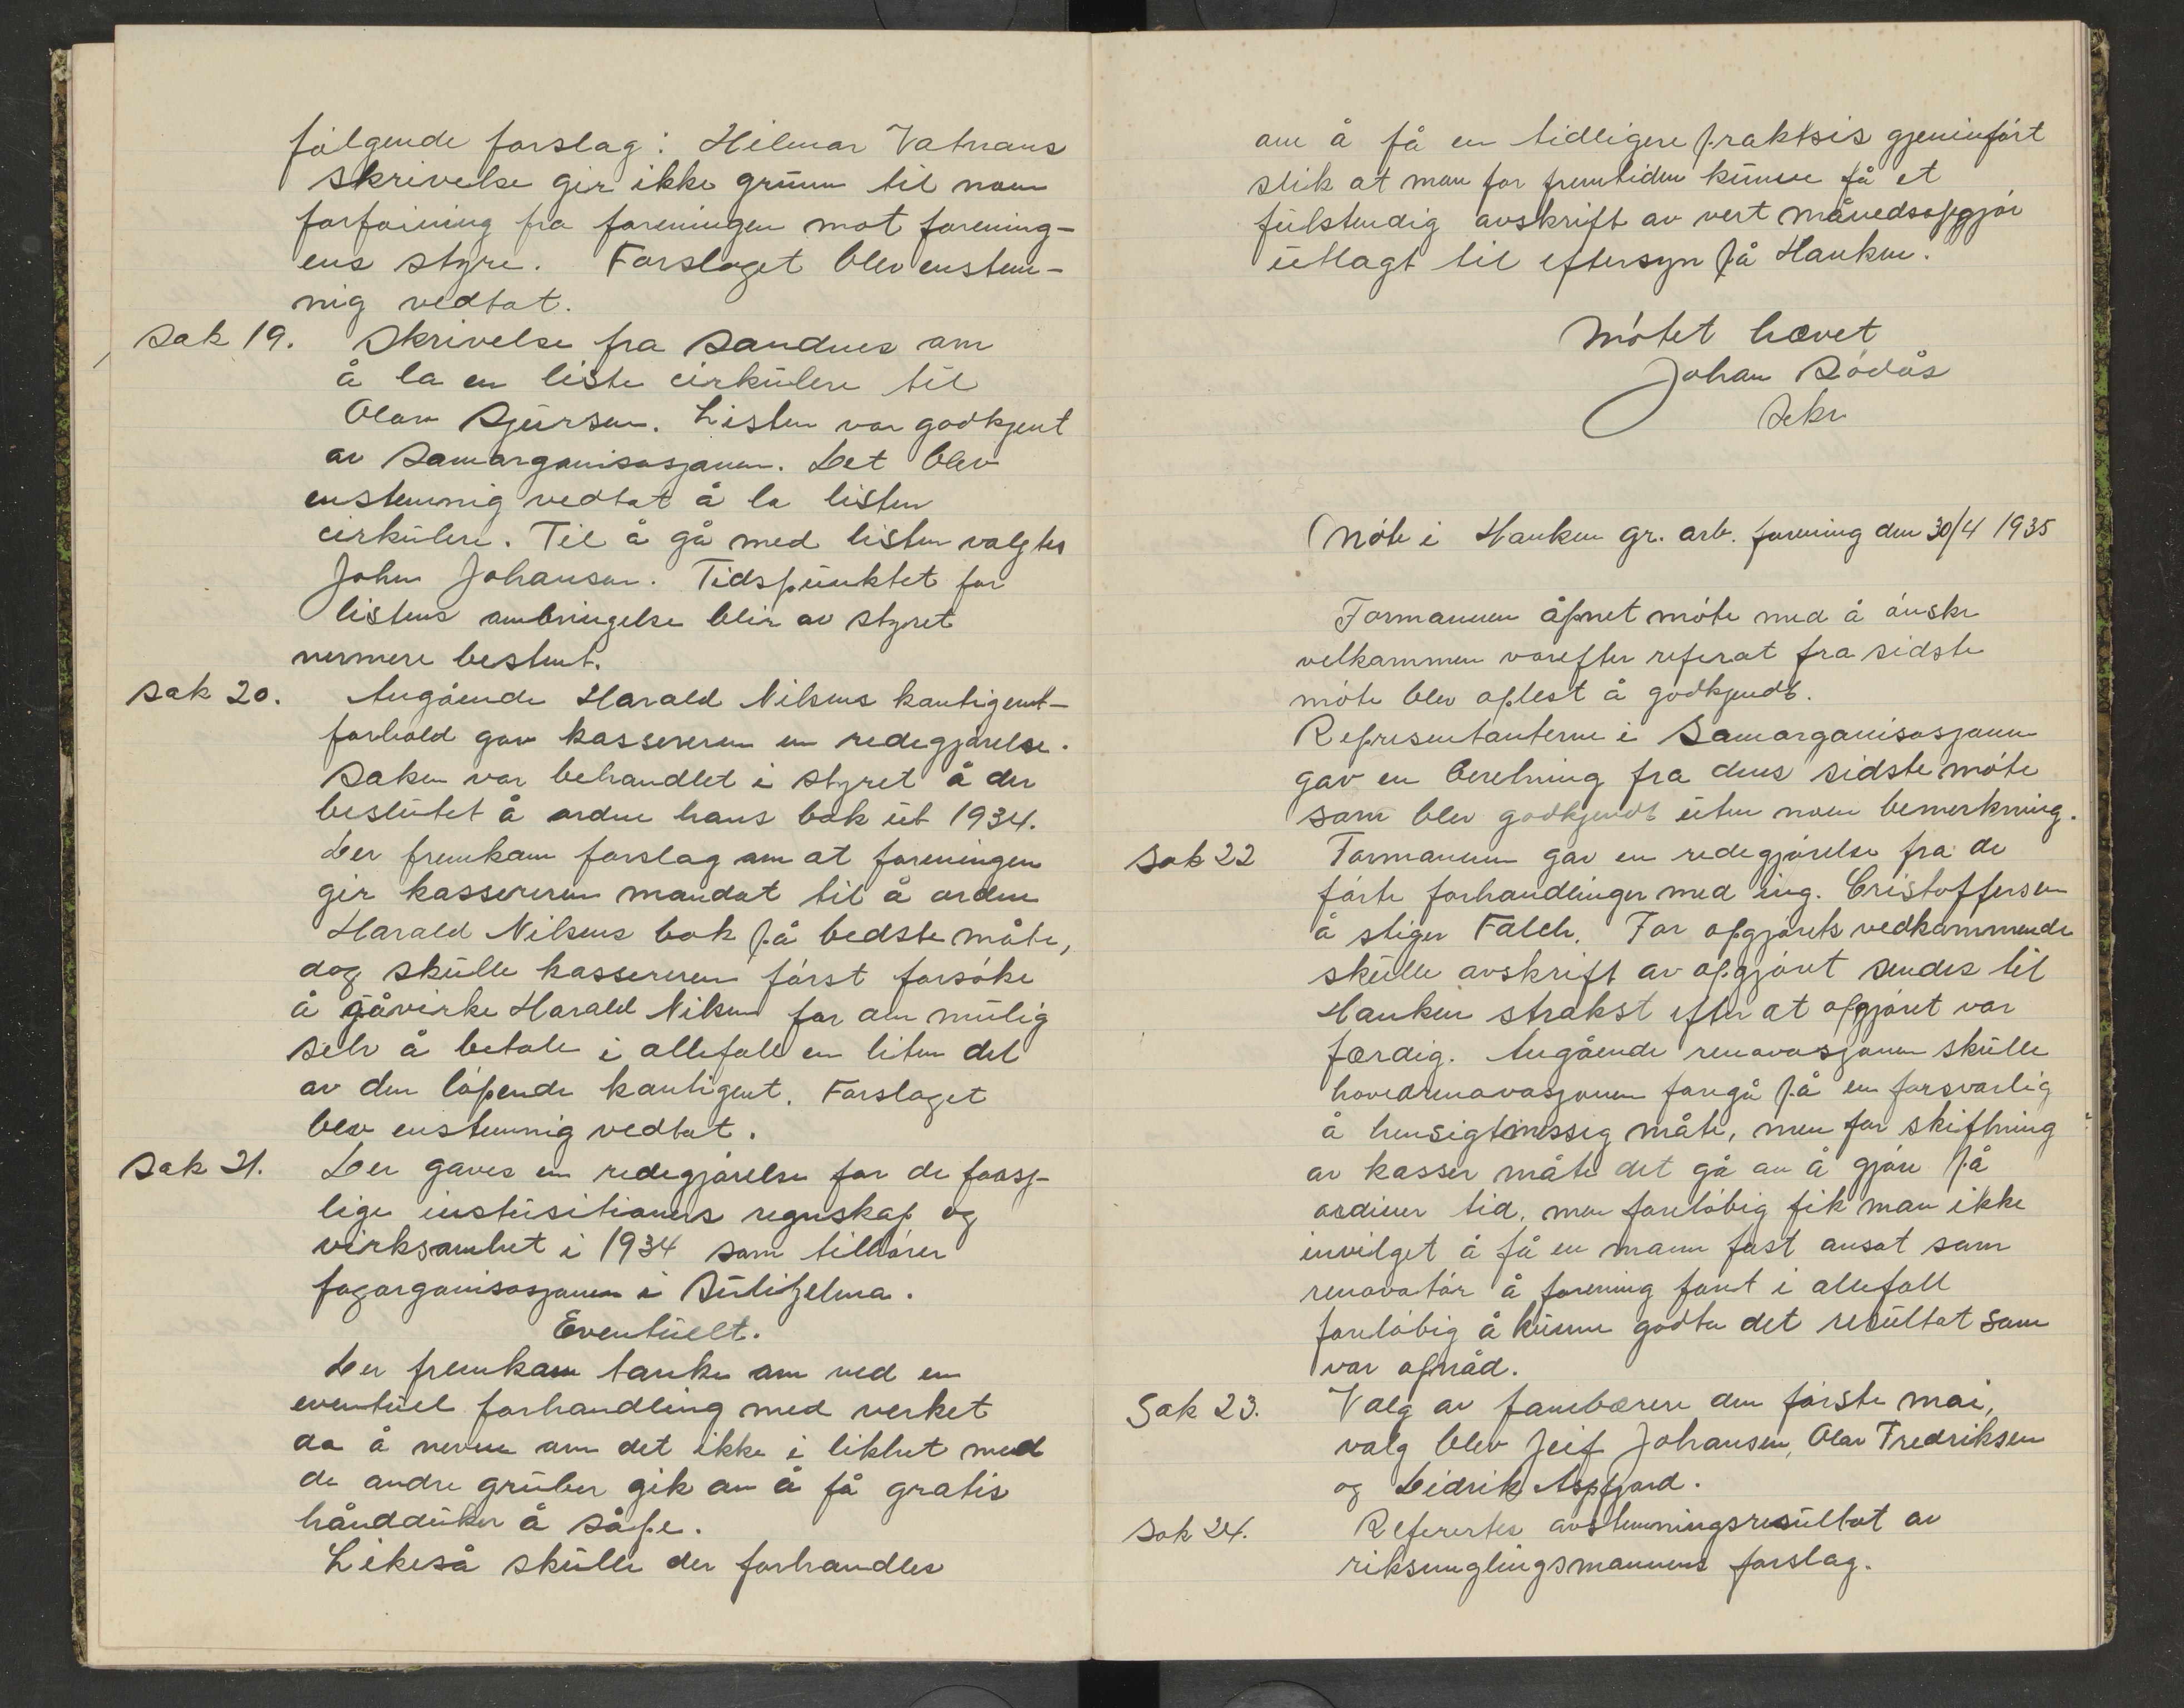 følgende forslag: Hilmar Vatnans
skrivelse gir ikke grunn til noen
forføining fra foreningen mot forening-
ens styre. Forslaget blev enstem-
nig vedtat.
Sak 19. Skrivelse fra Sandnes om
å la en liste cirkulere til
Olav Sjursen. Listen var godkjent
av Samorganisasjonen. Det blev
enstemmig vedtat å la listen
cirkulere. Til å gå med listen valgtes
John Johansen. Tidspunktet for
listens ombringelse blir av styret
nermere bestemt.
Sak 20. Angående Harald Nilsens kontigent-
forhold gav kassereren en redegjørelse.
Saken var behandlet i styret å der
besluttet å ordne hans bok ut 1934.
Der fremkom forslag om at foreningen
gir kassereren mandat til å ordne
Harald Nilsens bok på bedste måte,
dog skulle kassereren først forsøke
å påvirke Harald Nilsen for om mulig
selv å betale i allefall en liten del
av den løpende kontigent. Forslaget
blev enstemnig vedtat.
Sak 21. Der gaves en redegjørelse for de forsj-
lige instusitioners regnskap og
virksomhet i 1934 som tilhører
fagorganisasjonen i Sulitjelma.
Eventuelt.
Der fremkom tanke om ved en
eventuel forhandling med verket
da å nevne om det ikke i likhet med
de andre gruber gik an å få gratis
håndduker å såpe.
Likeså skulle der forhandles
om å få en tidligere praktsis gjeninført
slik at man for fremtiden kunne få et
fulstendig avskrift av vert månedsopgjør
utlagt til eftersyn på Hanken.
Møtet hævet
Johan Sødås
Sekr
Møte i Hanken gr. arb. forening den 30/4 1935
Formannen åpnet møte med å ønske
velkommen vorefter referat fra sidste
møte blev oplest å godkjendt.
Representanterne i Samorganisasjonen
gav en beretning fra dens sidste møte
som blev godkjendt uten noen bemerkning.
Sak 22 Formannen gav en redegjørelse fra de
førte forhandlinger med ing. Cristoffersen
å stiger Falch. For opgjørets vedkommende
skulle avskrift av opgjøret sendes til
Hanken strakst efter at opgjøret var
færdig. Angående renovasjonen skulle
hovedrenovasjonen foregå på en forsvarlig
å hensigtmessig måte, men for skiftning
av kasser måtte det gå an å gjøre på
ordiner tid, men foreløbig fik man ikke
invilget å få en mann fast ansat som
renovatør å forening fant i allefall
foreløbig å kunne godta det resultat som
var opnåd.
Sak 23. Valg av fanebærere den første mai,
valg blev Jeif Johansen, Olav Fredriksen
og Didrik Aspfjord.
Sak 24. Refertes avstemningsresultat av
riksmeglingsmannens forslag.